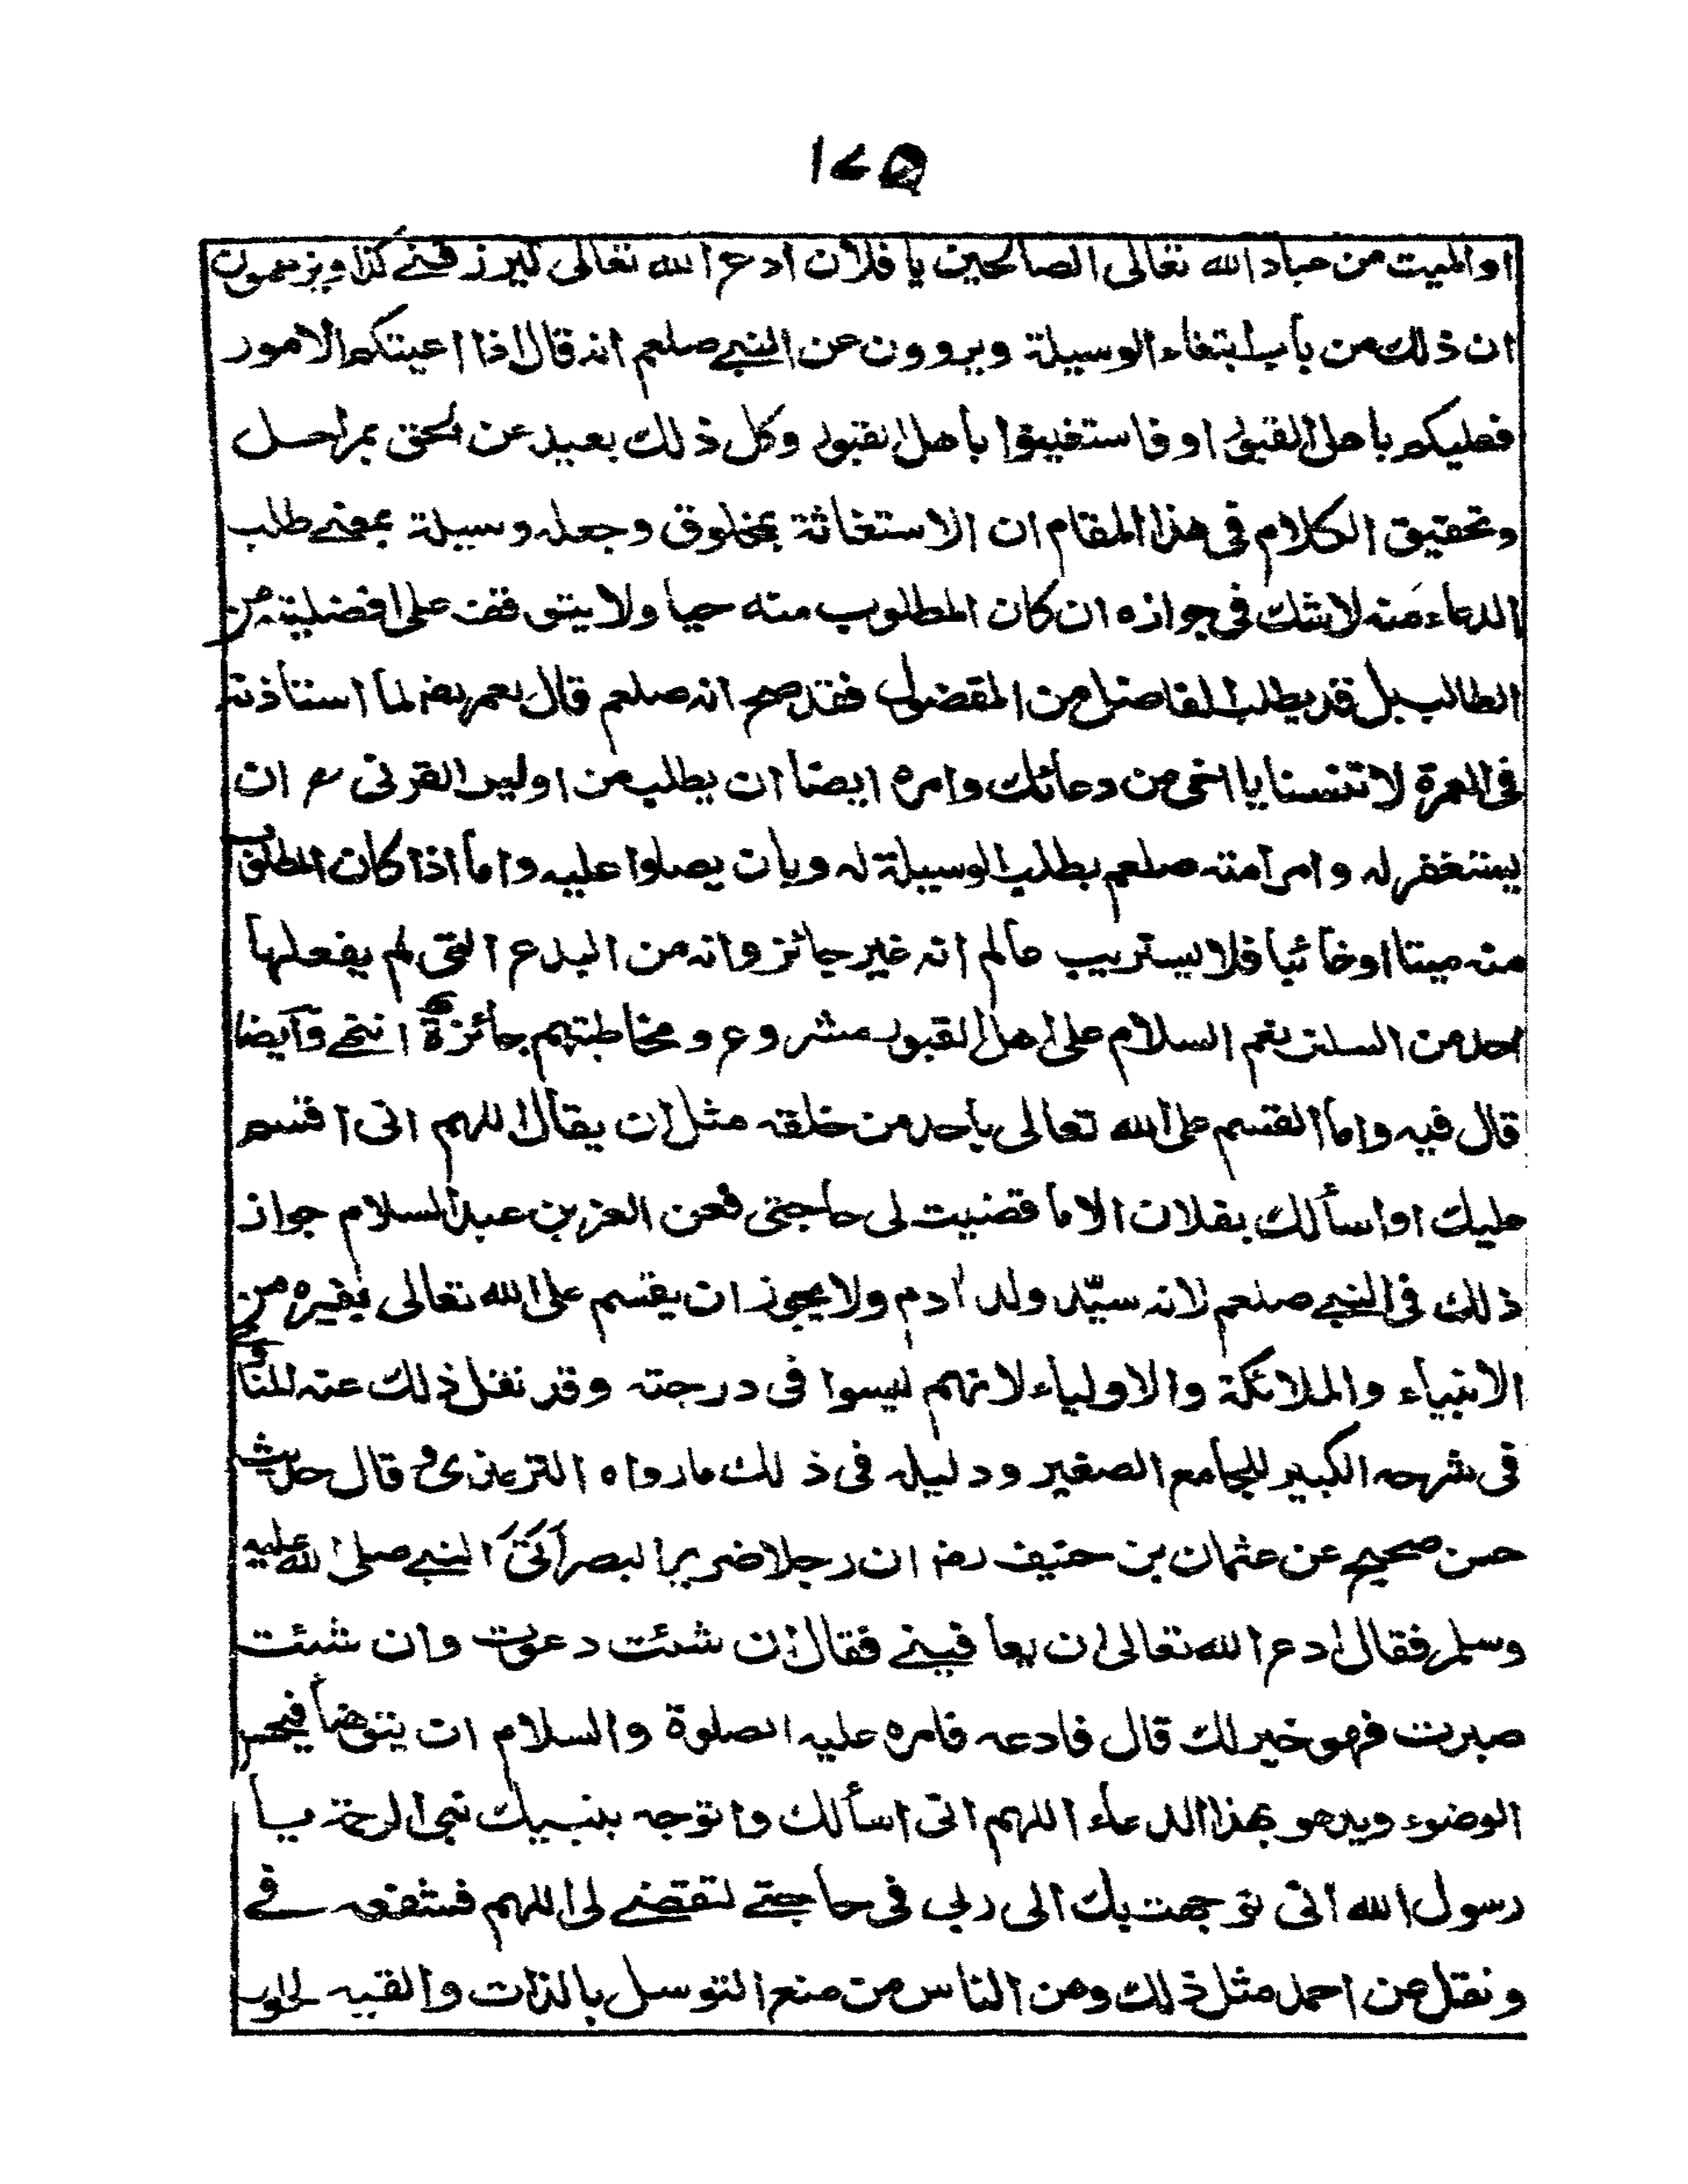 ١٧٥
او الميت من عباد الله تعالى الصالحين يا فلان ادع الله تعالى ليرزقني كذا ويزعمون
ان ذلك من باب ابتغاء الوسيلة ويروون عن النبي صلعم انه قال اذا اعيتكم الامور
فعليكم باهل القبور او فاستغيثوا باهل القبور وكل ذلك بعيد عن الحق بمراحل
وتحقيق الكلام في هذا المقام ان الاستغاثة بمخلوق وجعله وسيلة بمعنى طلب
الدعاء منه لا شك في جوازه ان كان المطلوب منه حيا ولا يتوقف على افضليته من
الطالب بل قد يطلب الفاضل من المفضول فقد صح انه صلعم قال لعمر رضـ لما استأذنه
في العمرة لا تنسنا يا اخي من دعائك وامره ايضا ان يطلب من اويس القرني رح ان
يستغفر له وامر امته صلعم بطلب الوسيلة له وبان يصلوا عليه واما اذا كان المطلوب
منه ميتا او غائبا فلا يستريب عالم انه غير جائز وانه من البدع التي لم يفعلها
احد من السلف نعم السلام على اهل القبور مشروع ومخاطبتهم جائزة انتهى وأيضا
قال فيه واما القسم على الله تعالى باحد من خلقه مثل ان يقال اللهم اني اقسم
عليك او اسألك بفلان الا ما قضيت لي حاجتي فعن العز بن عبد السلام جواز
ذلك في النبي صلعم لانه سيّد ولد آدم ولا يجوز ان يقسم على الله تعالى بغيره من
الانبياء والملائكة والاولياء لانهم ليسوا في درجته وقد نقل ذلك عنه المناوي
في شرحه الكبير للجامع الصغير ودليله في ذلك ما رواه الترمذي وقال حديث
حسن صحيح عن عثمان بن حنيف رضـ ان رجلا ضرير البصر أَتَى النبي صلى الله عليه
وسلم فقال ادع الله تعالى ان يعافيني فقال ان شئت دعوت وان شئت
صبرت فهو خير لك قال فادعه فامره عليه الصلوة والسلام ان يتوضأ فيحسن
الوضوء ويدعو بهذا الدعاء اللهم اني اسألك واتوجه بنبيك نبي الرحمة يا
رسول الله اني توجهت بك الى ربي في حاجتي لتقضى لي اللهم فشفعه في
ونقل عن احمد مثل ذلك ومن الناس من منع التوسل بالذات والقسم